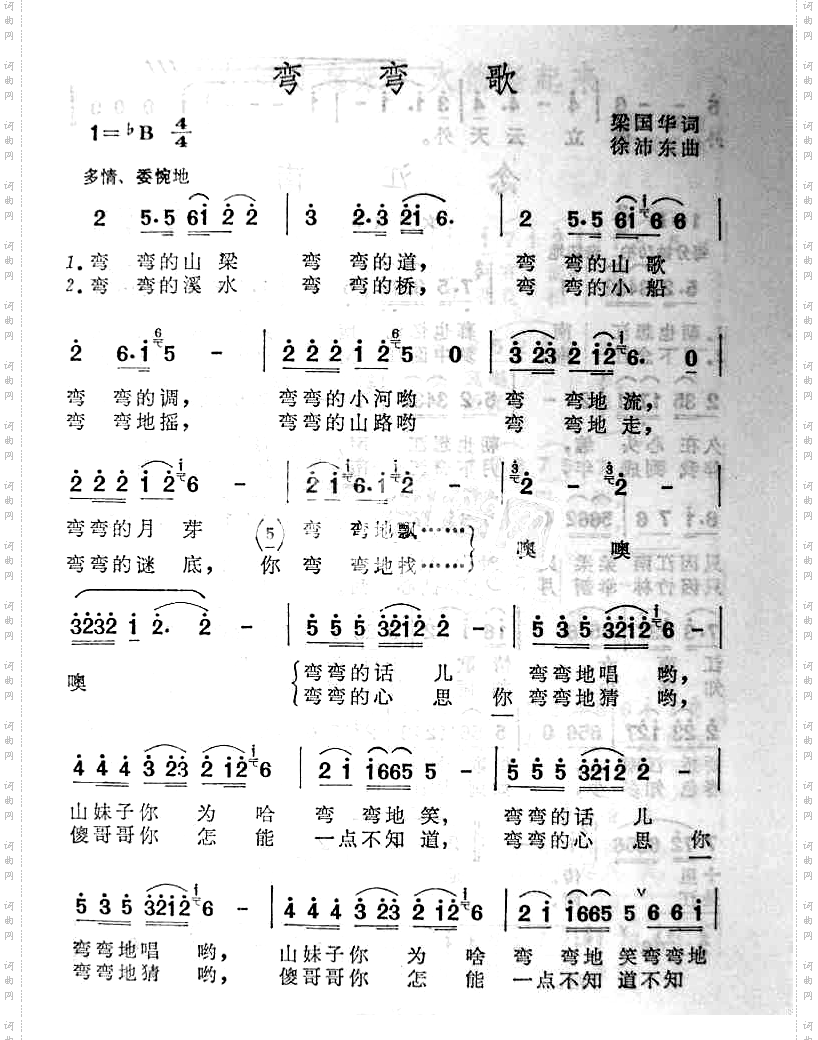 弯弯歌
1=♭B 4/4
梁国华词
徐沛东曲
多情、委惋地
2 5·5 6i 2 2 | 3 2·3 2i 6· | 2 5·5 6i 6 6
1.弯 弯的山 梁 弯 弯的道， 弯 弯的山 歌
2.弯 弯的溪 水 弯 弯的桥， 弯 弯的小 船
2 6·i 5 - | 2 2 2 i 2 5 0 | 3 23 2 i2 6· 0
弯 弯的调， 弯弯的小河哟 弯 弯地 流，
弯 弯地摇， 弯弯的山路哟 弯 弯地 走，
2 2 2 i 2 6 - | 2 i 6·i 2 - | 2 - 2 -
弯弯的月 芽 (5) 弯 弯地飘……
噢 噢
弯弯的谜 底， 你 弯 弯地找……
3232 i 2· 2 - | 5 5 5 32i2 2 - | 5 3 5 32i2 6 -
噢 弯弯的话 儿 弯弯地唱 哟，
弯弯的心 思 你 弯弯地猜 哟，
4 4 4 3 23 2 i2 6 | 2 i i665 5 - | 5 5 5 32i2 2 -
山妹子你 为 啥 弯 弯地 笑， 弯弯的话 儿
傻哥哥你 怎 能 一点不知 道， 弯弯的心 思 你
5 3 5 32i2 6 - | 4 4 4 3 23 2 i2 6 | 2 i i665 5 6 6 i
弯弯地唱 哟， 山妹子你 为 啥 弯 弯地 笑弯弯地
弯弯地猜 哟， 傻哥哥你 怎 能 一点不知 道不知
词曲网